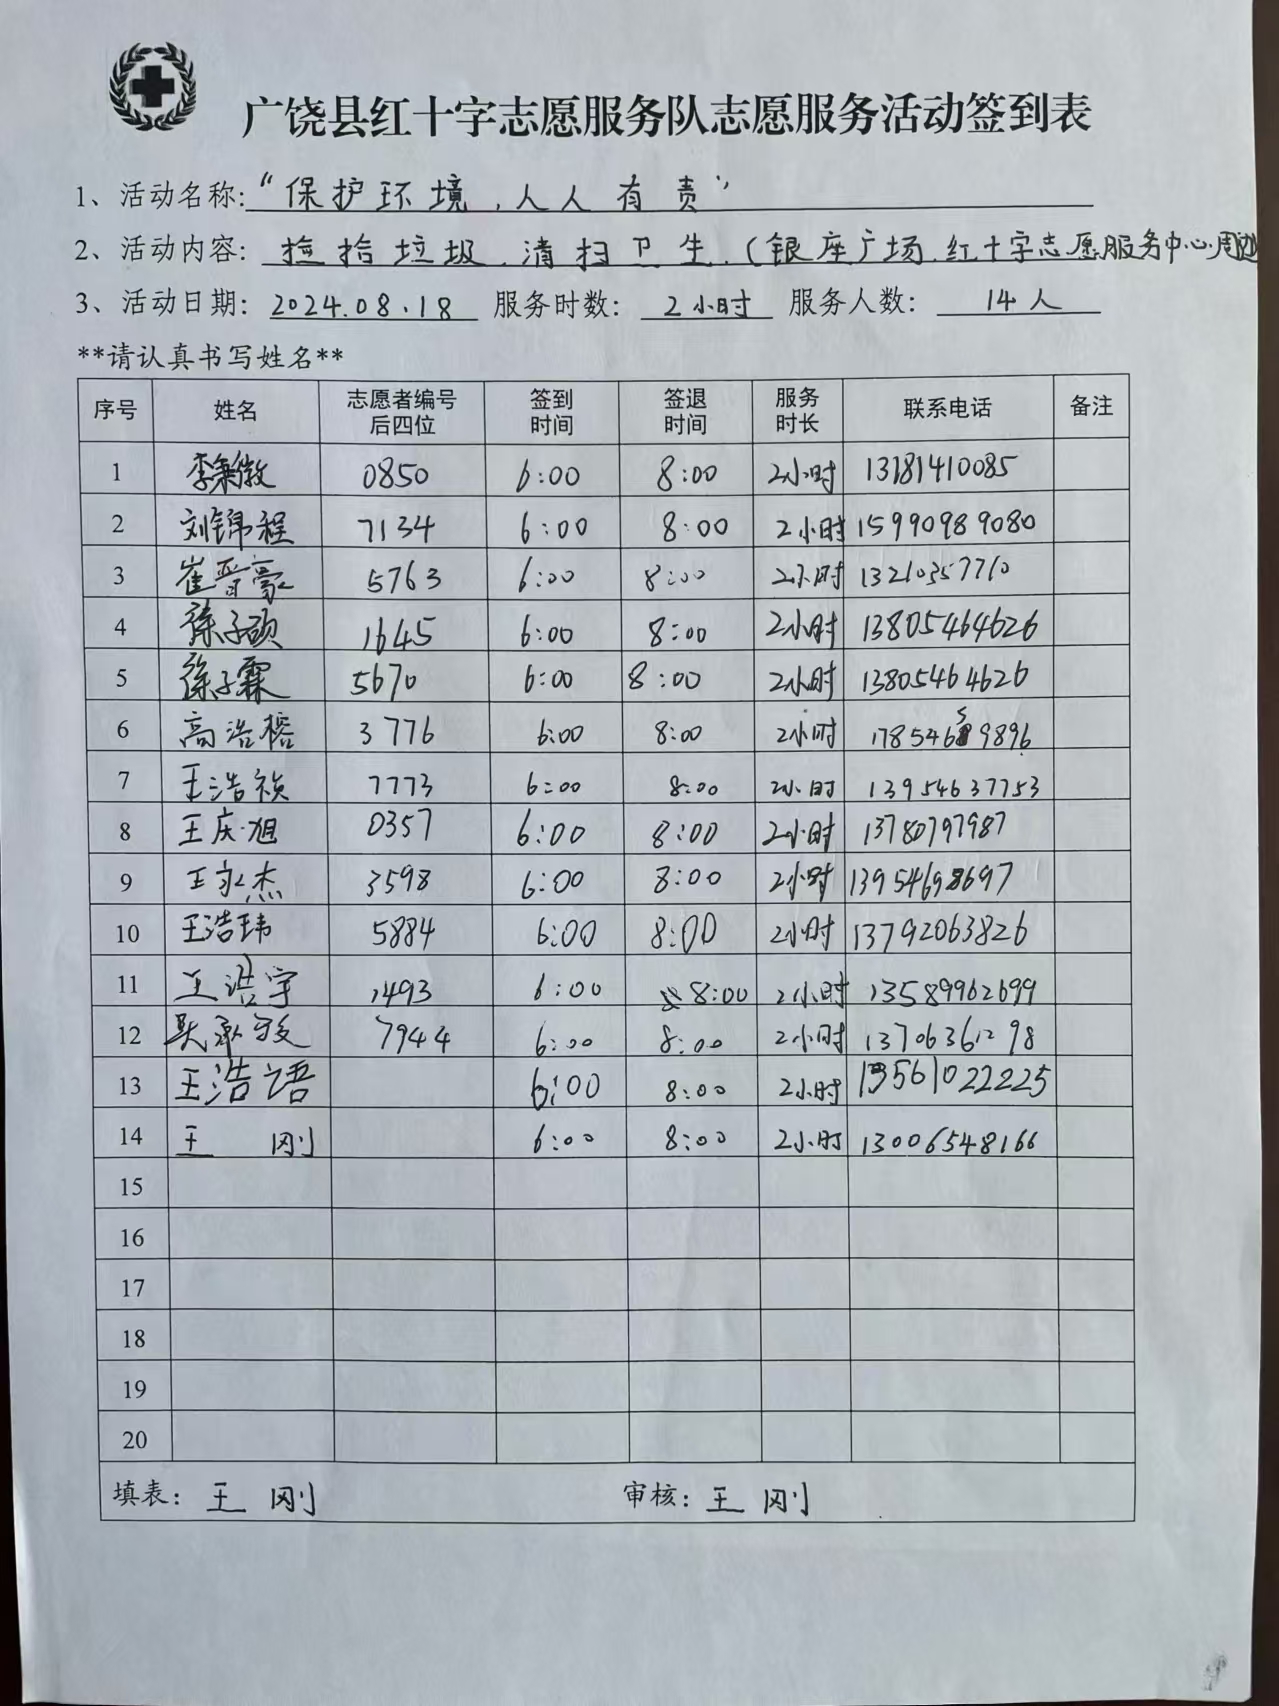 广饶县红十字志愿服务队志愿服务活动签到表
1、活动名称:“保护环境,人人有责”
2、活动内容: 捡拾垃圾.清扫卫生.(银座广场.红十字志愿服务中心周边
3、活动日期: 2024.08.18 服务时数: 2小时 服务人数: 14人
**请认真书写姓名**
序号 姓名 志愿者编号后四位 签到时间 签退时间 服务时长 联系电话 备注
1 李秉徽 0850 6:00 8:00 2小时 13181410085
2 刘锦程 7134 6:00 8:00 2小时 15990989080
3 崔晋豪 5763 6:00 8:00 2小时 13210357710
4 徐子硕 1645 6:00 8:00 2小时 13805464626
5 徐子霖 5670 6:00 8:00 2小时 13805464626
6 高浩榕 3776 6:00 8:00 2小时 17854659896
7 王浩祯 7773 6:00 8:00 2小时 13954637753
8 王庆旭 0357 6:00 8:00 2小时 13780797987
9 王永杰 3598 6:00 8:00 2小时 13954698697
10 王浩玮 5884 6:00 8:00 2小时 13792063826
11 王浩宇 1493 6:00 8:00 2小时 13589962699
12 吴承骏 7944 6:00 8:00 2小时 13706361298
13 王浩语 6:00 8:00 2小时 13561022225
14 王刚 6:00 8:00 2小时 13006548166
15
16
17
18
19
20
填表: 王刚 审核: 王刚